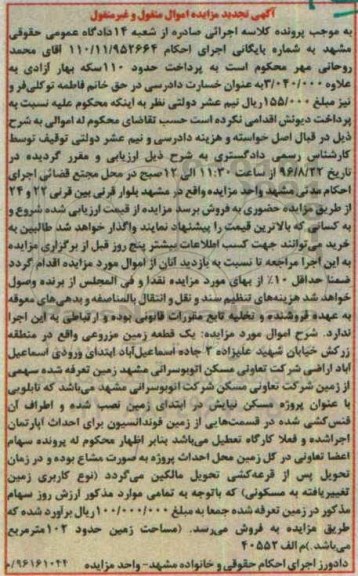 آگهی تجدید مزایده اموال منقول و غیرمنقول
به موجب پرونده کلاسه اجرائی صادره از شعبه ۱۴دادگاه عمومی حقوقی
مشهد به شماره بایگانی اجرای احکام ۱۱۰/۱۱/۹۵۲۶۶۴ آقای محمد
روحانی مهر محکوم است به پرداخت حدود ۱۱۰سکه بهار آزادی به
علاوه ۳/۰۴۰/۰۰۰به عنوان خسارت دادرسی در حق خانم فاطمه توکلی‌فر و
نیز مبلغ ۱۵۵/۰۰۰ریال نیم عشر دولتی نظر به اینکه محکوم علیه نسبت به
پرداخت دیونش اقدامی نکرده است حسب تقاضای محکوم له اموالی به شرح
ذیل در قبال اصل خواسته و هزینه دادرسی و نیم عشر دولتی توقیف توسط
کارشناس رسمی دادگستری به شرح ذیل ارزیابی و مقرر گردیده در
تاریخ ۹۶/۸/۲۲ از ساعت ۱۱:۳۰ الی ۱۲صبح در محل مجتع قضائی اجرای
احکام مدنی مشهد واحد مزایده واقع در مشهد بلوار قرنی بین قرنی ۲۲ و ۲۴
از طریق مزایده حضوری به فروش برسد مزایده از قیمت ارزیابی شده شروع و
به کسانی که بالاترین قیمت را پیشنهاد نمایند واگذار خواهد شد طالبین به
خرید می‌توانند جهت کسب اطلاعات بیشتر پنج روز قبل از برگزاری مزایده
به این اجرا مراجعه تا نسبت به بازدید آنان از اموال مورد مزایده اقدام گردد
ضمنا حداقل ۱۰٪ از بهای مورد مزایده نقدا و فی المجلس از برنده وصول
خواهد شد هزینه‌های تنظیم سند و نقل و انتقال بالمناصفه و بدهی‌های معوقه
به عهده فروشنده و تخلیه تابع مقررات قانونی بوده و ارتباطی به این اجرا
ندارد. شرح اموال مورد مزایده: یک قطعه زمین مزروعی واقع در منطقه
زرکش خیابان شهید علیزاده ۳ جاده اسماعیل‌آباد ابتدای ورودی اسماعیل
آباد اراضی شرکت تعاونی مسکن اتوبوسرانی مشهد زمین تعرفه شده سهمی
از زمین شرکت تعاونی مسکن شرکت اتوبوسرانی مشهد می‌باشد که تابلویی
با عنوان پروژه مسکن نیایش در ابتدای زمین نصب شده و اطراف آن
فنس‌کشی شده در قسمت‌هایی از زمین فوندانسیون برای احداث آپارتمان
اجراشده و فعلا کارگاه تعطیل می‌باشد بنابر اظهار محکوم له پرونده سهام
اعضا تعاونی در کل زمین محل احداث پروژه به صورت مشاع بوده و در زمان
تحویل پس از قرعه‌کشی تحویل مالکین می‌گردد (نوع کاربری زمین
تغییریافته به مسکونی) که باتوجه به تمامی موارد مذکور ارزش روز سهام
مذکور در زمین تعرفه شده جمعا به مبلغ ۱۰۰/۰۰۰/۰۰۰ریال برآورد شده که
طریق مزایده به فروش می‌رسد. (مساحت زمین حدود ۱۰۲مترمربع
می‌باشد.)م الف ۴۰۵۵۲
دادورز اجرای احکام حقوقی و خانواده مشهد- واحد مزایده ۹۶۱۶۱۰۴۴/